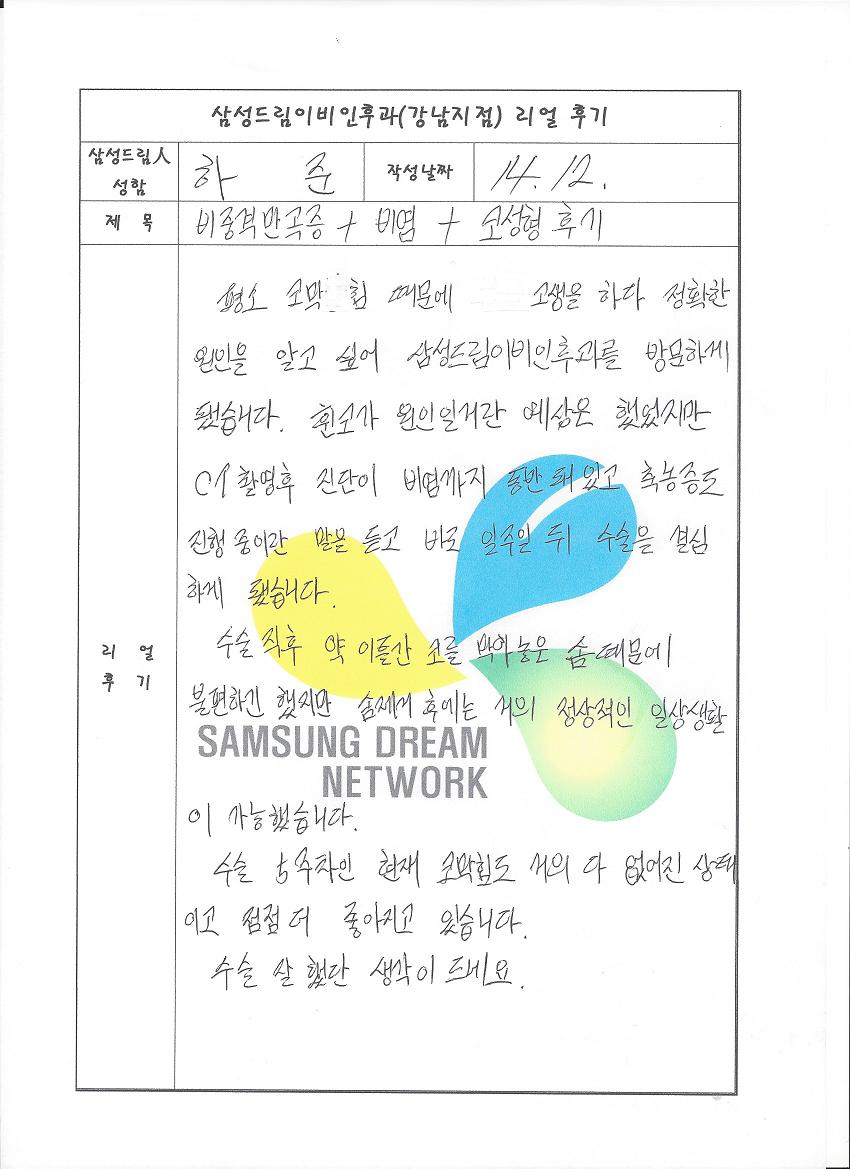 삼성드림이비인후과(강남지점) 리얼 후기
삼성드림人 성함 하 준 작성날짜 14.12.
제 목 비중격만곡증 + 비염 + 코성형 후기
리 얼 후 기
평소 코막힘 때문에 고생을 하다 정확한
원인을 알고 싶어 삼성드림이비인후과를 방문하게
됐습니다. 휜코가 원인일거란 예상은 했었지만
CT촬영후 진단이 비염까지 동반 돼 있고 축농증도
진행 중이란 말을 듣고 바로 일주일 뒤 수술을 결심
하게 됐습니다.
수술 직후 약 이틀간 코를 막아놓은 솜 때문에
불편하긴 했지만 솜제거 후에는 거의 정상적인 일상생활
SAMSUNG DREAM
NETWORK
이 가능했습니다.
수술 5주차인 현재 코막힘도 거의 다 없어진 상태
이고 점점 더 좋아지고 있습니다.
수술 잘 했단 생각이 드네요.